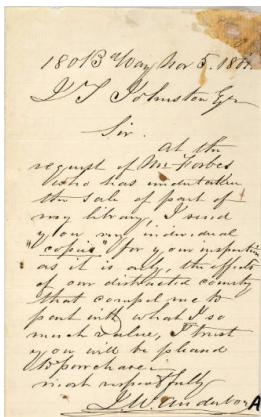 180 B'Way Nov 5. 18
J T Johnston Esqr
Sir.
At the
request of Mr Forbes
who has undertaken
the sale of part of
my library, I send
you my individual
"copies" for your inspection
as it is only, the effects
of our distracted country
that compel me to
part with what I so
much value, I trust
you will be pleased
to purchase.
most respectfully
J. W.
A